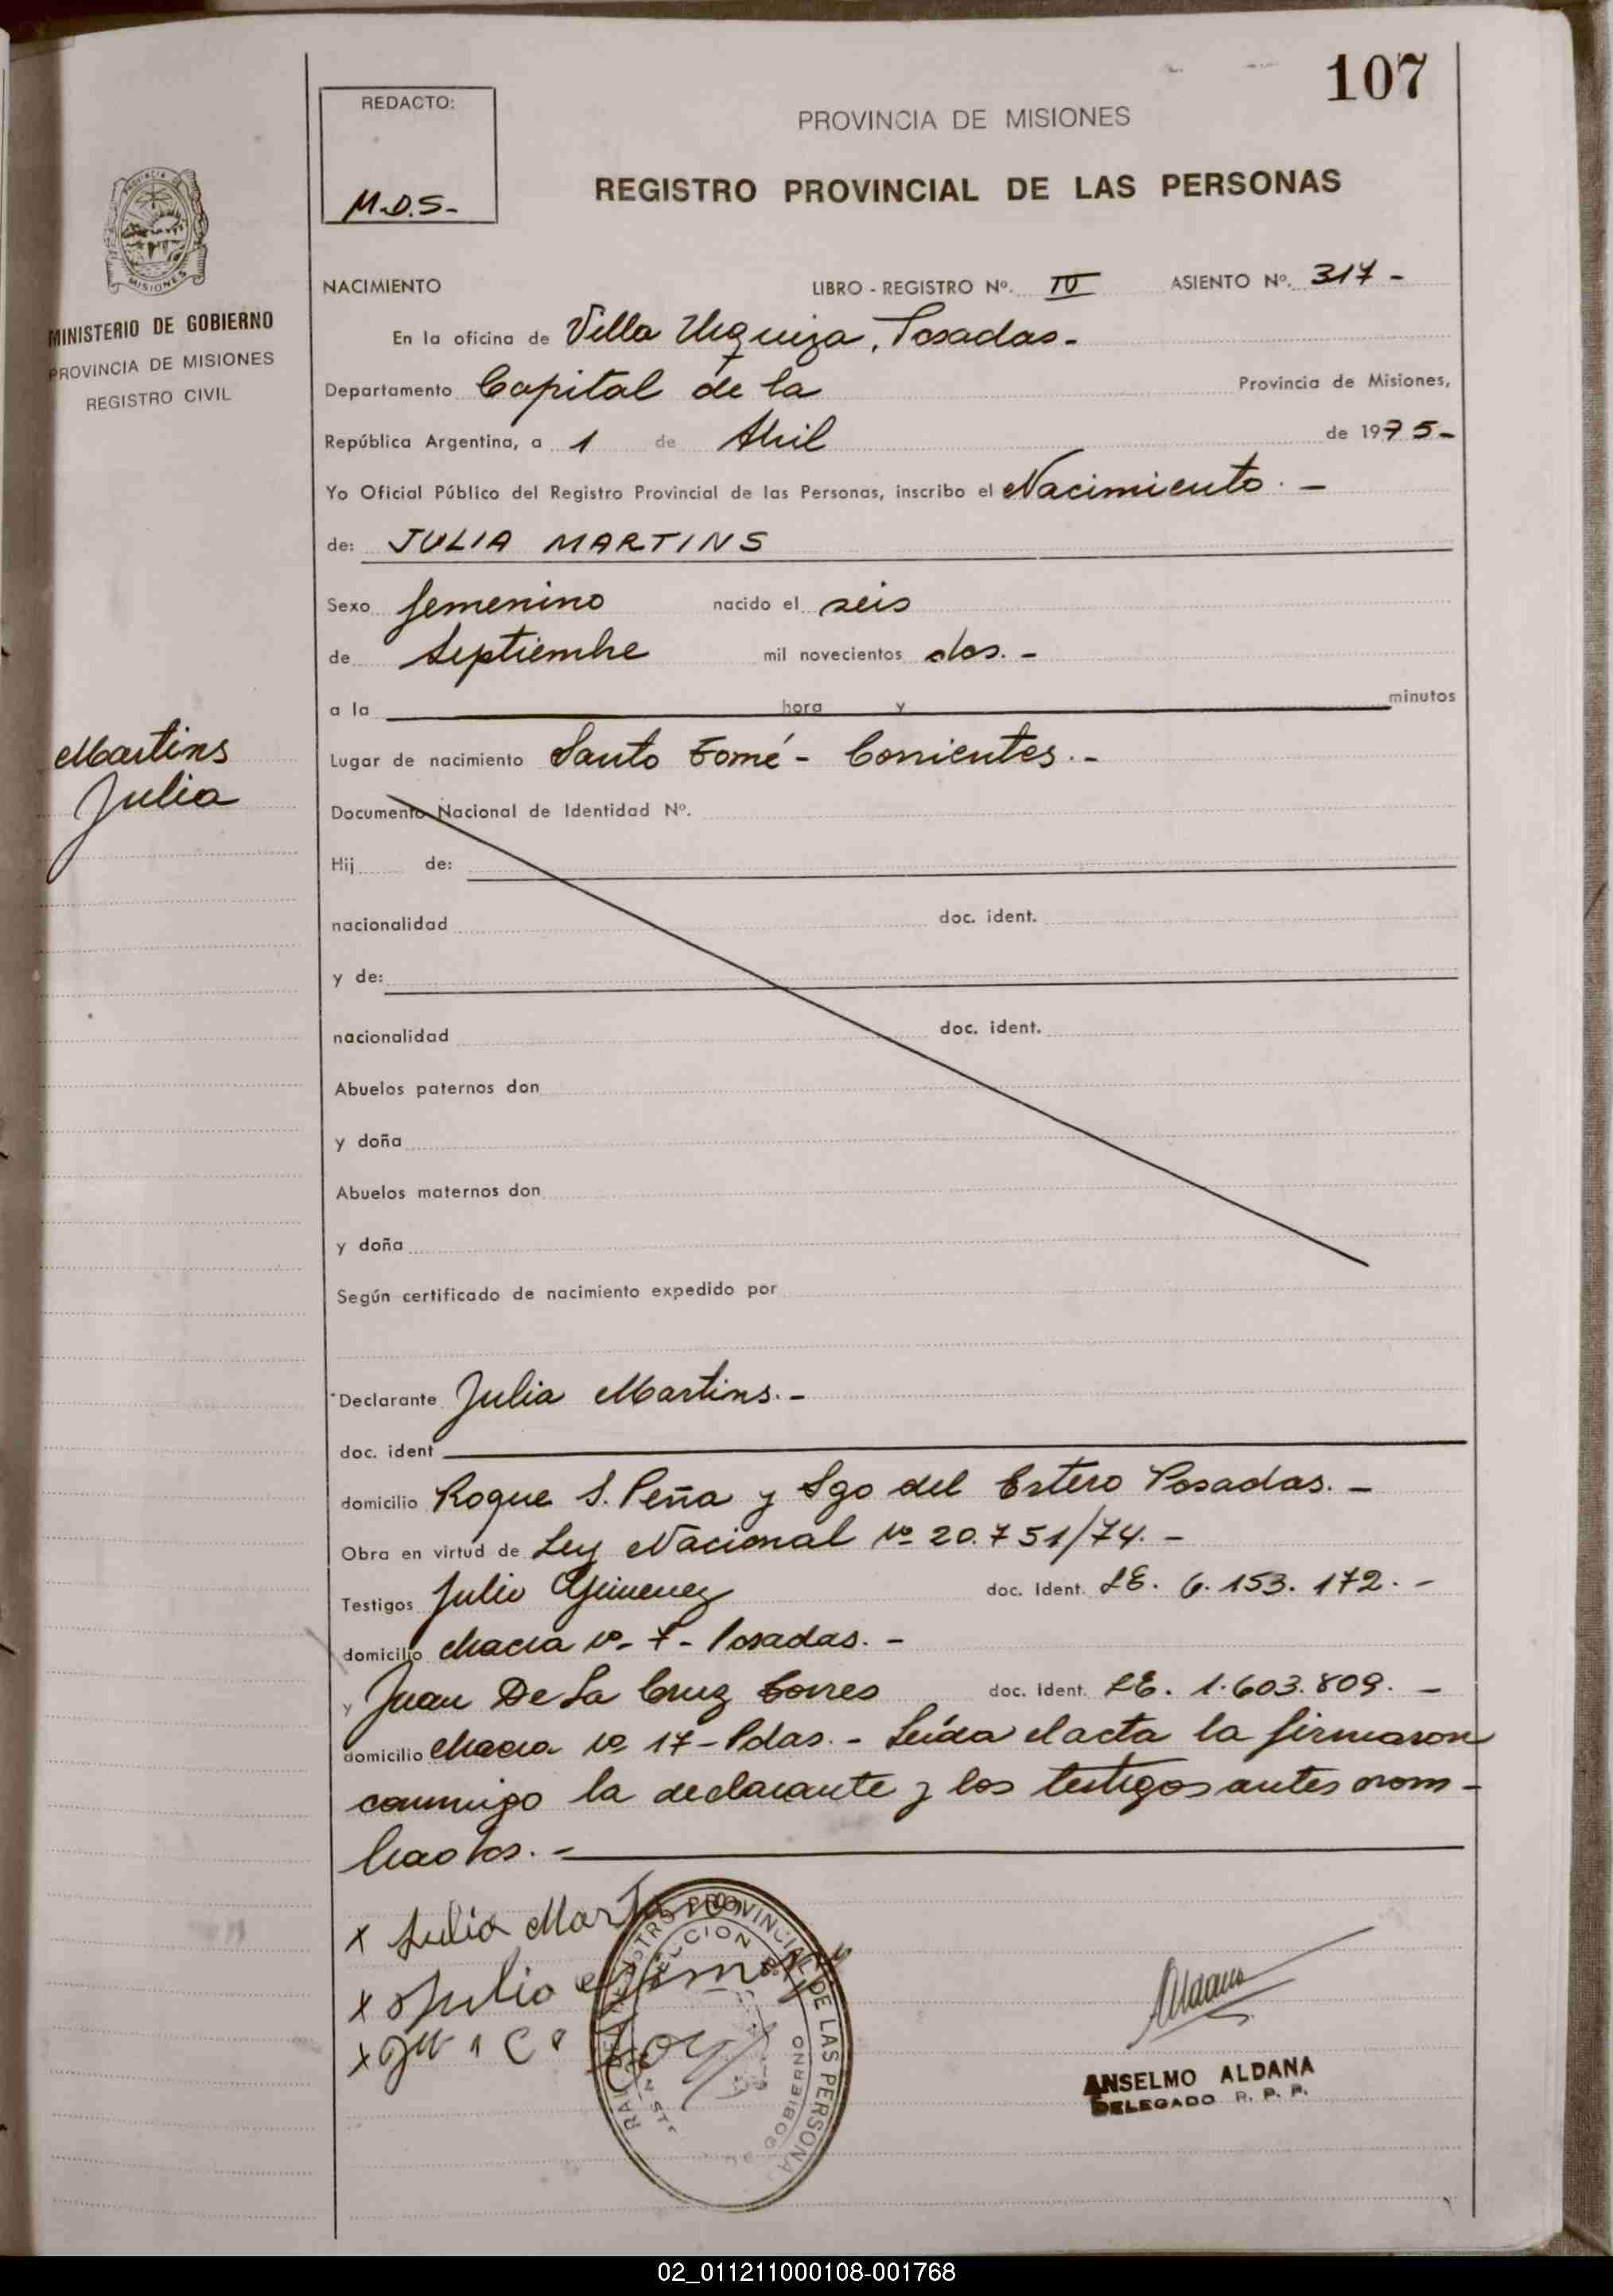 107
REDACTO:
M.D.S-
PROVINCIA DE MISIONES
REGISTRO PROVINCIAL DE LAS PERSONAS
PROVINCIA DE
MISIONES
MINISTERIO DE GOBIERNO
PROVINCIA DE MISIONES
REGISTRO CIVIL
NACIMIENTO LIBRO - REGISTRO Nº. IV ASIENTO Nº. 317 -
En la oficina de Villa Urquiza, Posadas.-
Departamento Capital de la Provincia de Misiones,
República Argentina, a 1 de Abril de 1975-
Yo Oficial Público del Registro Provincial de las Personas, inscribo el Nacimiento. -
de: JULIA MARTINS
Sexo femenino nacido el seis
de Septiembre mil novecientos dos. -
a la hora y minutos
Martins
Julia
Lugar de nacimiento Santo Tomé - Corrientes. -
Documento Nacional de Identidad Nº.
Hij de:
nacionalidad doc. ident.
y de:
nacionalidad doc. ident.
Abuelos paternos don
y doña
Abuelos maternos don
y doña
Según certificado de nacimiento expedido por
Declarante Julia Martins. -
doc. ident
domicilio Roque S. Peña y Sgo del Estero Posadas. -
Obra en virtud de Ley Nacional Nº 20.751/74. -
Testigos Julio Gimenez doc. Ident. LE. 6.153.172. -
domicilio Chacra Nº - 7 - Posadas. -
y Juan De La Cruz Torres doc. Ident. LE. 1.603.809. -
domicilio Chacra Nº 17 - Pdas. - Leída el acta la firmaron
conmigo la declarante y los testigos antes nom-
brados. -
x Julia Martins
x Julio Gimenez
x
REGISTRO PROVINCIAL DE LAS PERSONA
GOBIERNO
Aldana
ANSELMO ALDANA
DELEGADO R. P. P.
02_011211000108-001768